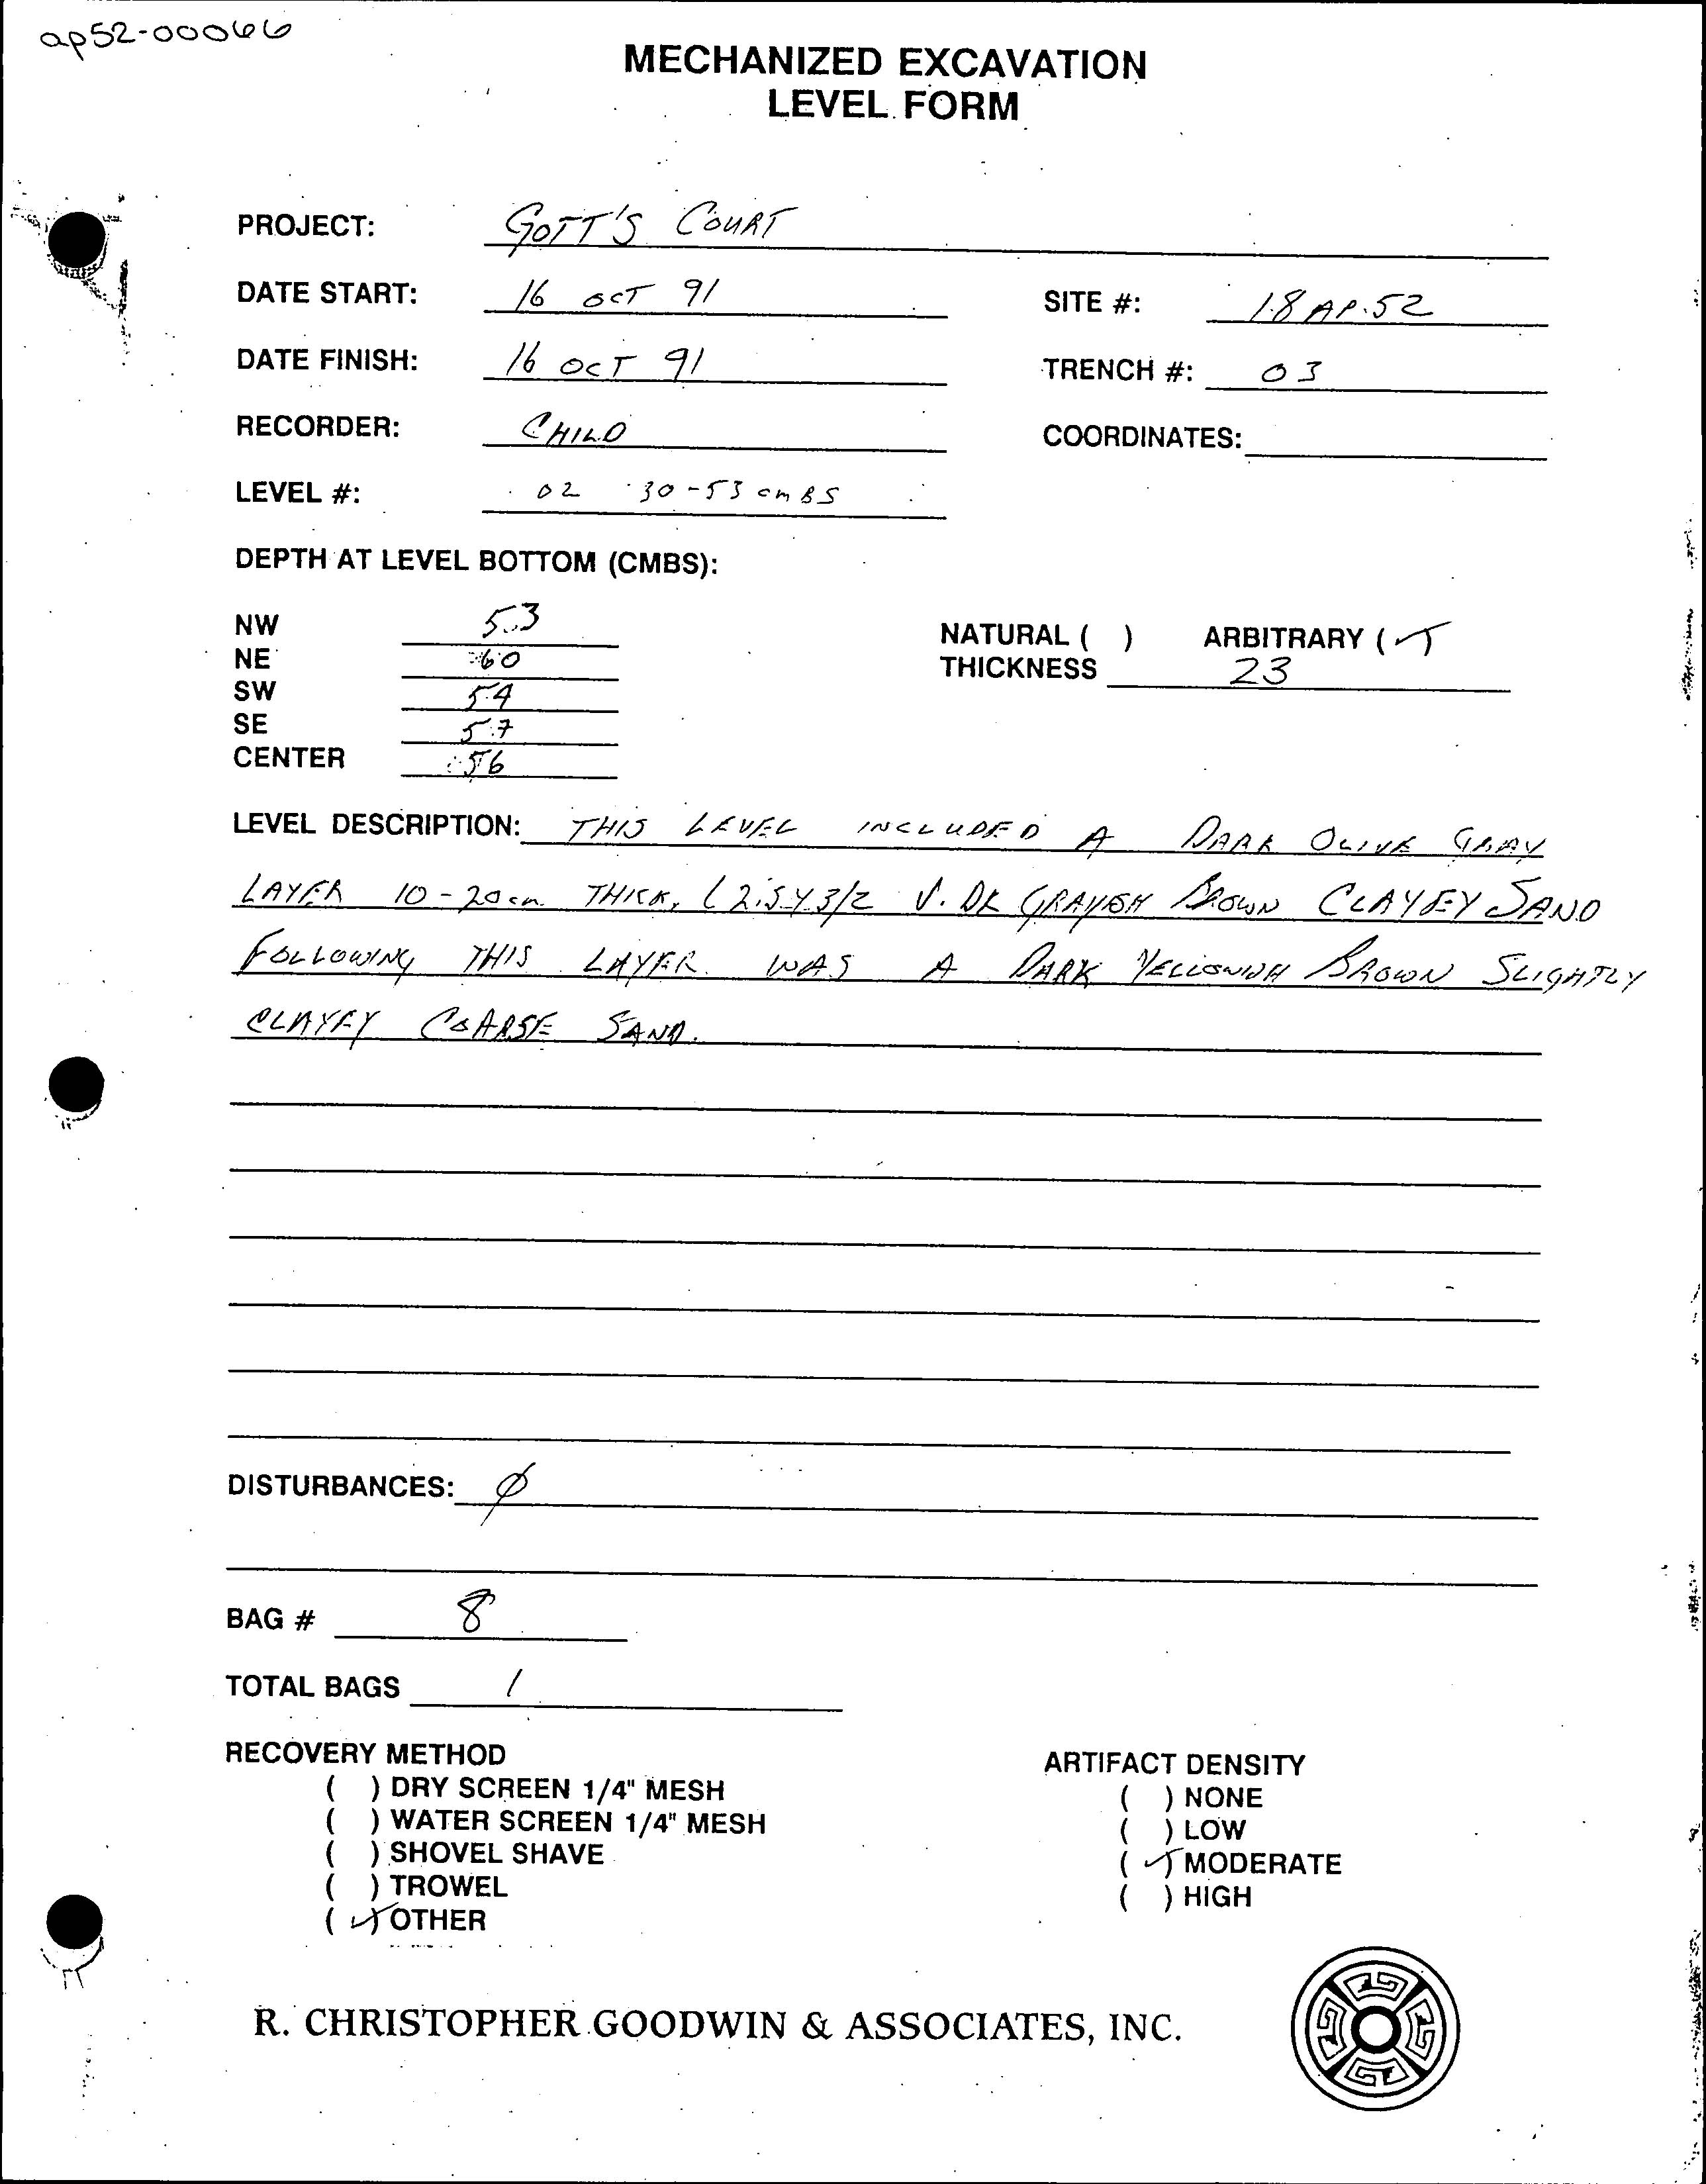 ap52-00066
MECHANIZED EXCAVATION
LEVEL FORM
PROJECT: GOTT'S COURT
DATE START: 16 OCT 91 SITE #: 18 AP 52
DATE FINISH: 16 OCT 91 TRENCH #: 03
RECORDER: CHILD COORDINATES:
LEVEL #: 02 30-53 cmBS
DEPTH AT LEVEL BOTTOM (CMBS):
NW 53 NATURAL ( ) ARBITRARY (✓)
NE 60 THICKNESS 23
SW 54
SE 57
CENTER 56
LEVEL DESCRIPTION: THIS LEVEL INCLUDED A DARK OLIVE GRAY
LAYER 10-20cm THICK, (2.5Y 3/2 V. DK GRAYISH BROWN CLAYEY SAND
FOLLOWING THIS LAYER WAS A DARK YELLOWISH BROWN SLIGHTLY
CLAYEY COARSE SAND.
DISTURBANCES: ∅
BAG # 8
TOTAL BAGS 1
RECOVERY METHOD ARTIFACT DENSITY
( ) DRY SCREEN 1/4" MESH ( ) NONE
( ) WATER SCREEN 1/4" MESH ( ) LOW
( ) SHOVEL SHAVE (✓) MODERATE
( ) TROWEL ( ) HIGH
(✓) OTHER
R. CHRISTOPHER GOODWIN & ASSOCIATES, INC.